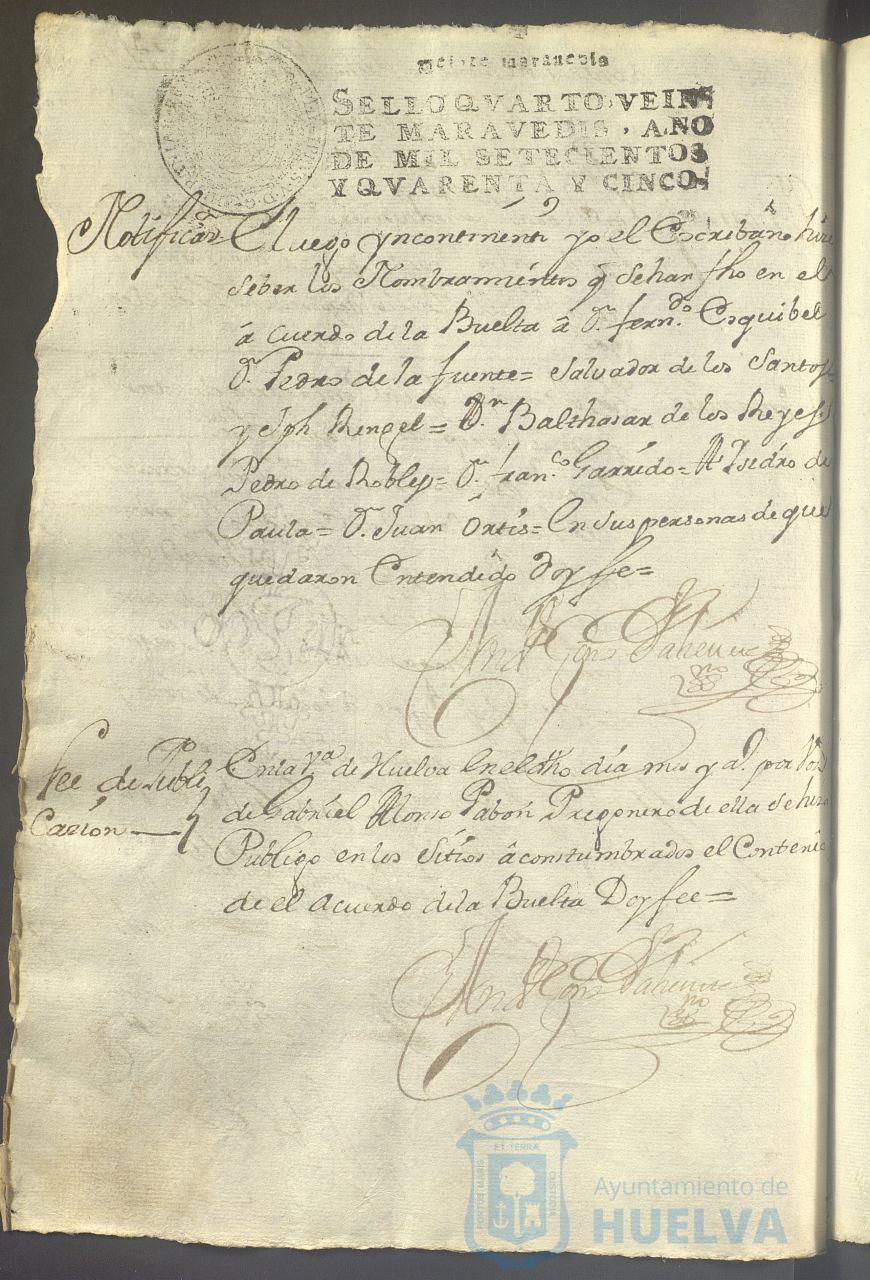 SELLO QVARTO, VEIN
TE MARAVEDIS, AÑO
DE MIL SETECIENTOS
Y QVARENTA Y CINCO.
Notificaⁿ
E luego yncontinenti yo el Escribano hize
seber los Nombramientos q̃ se han fho en el
acuerdo de la Buelta â Dⁿ. fernᵈᵒ. Esquibel
Dⁿ. Pedro de la fuente= Salvador de los Santos=
y Jph Rengel= Dⁿ. Balthasar de los Reyes=
Pedro de Robles= Dⁿ. franᶜᵒ Garrido= Isidro de
Paula= Dⁿ. Juan Ortis= En sus personas de que
quedaron Entendido Doy fee=
Fee de Publi
Cazion
En la Vᵃ de Huelva En el dho dia mes y aº. por Voz
de Gabriel Alonso Pabon Pregonero de ella se hizo
Publigo en los sitios aconstumbrados el Contenido
de el acuerdo de la Buelta Doy fee=
PORTUS MARIS
ET TERRÆ
CUSTODIA
Ayuntamiento de
HUELVA